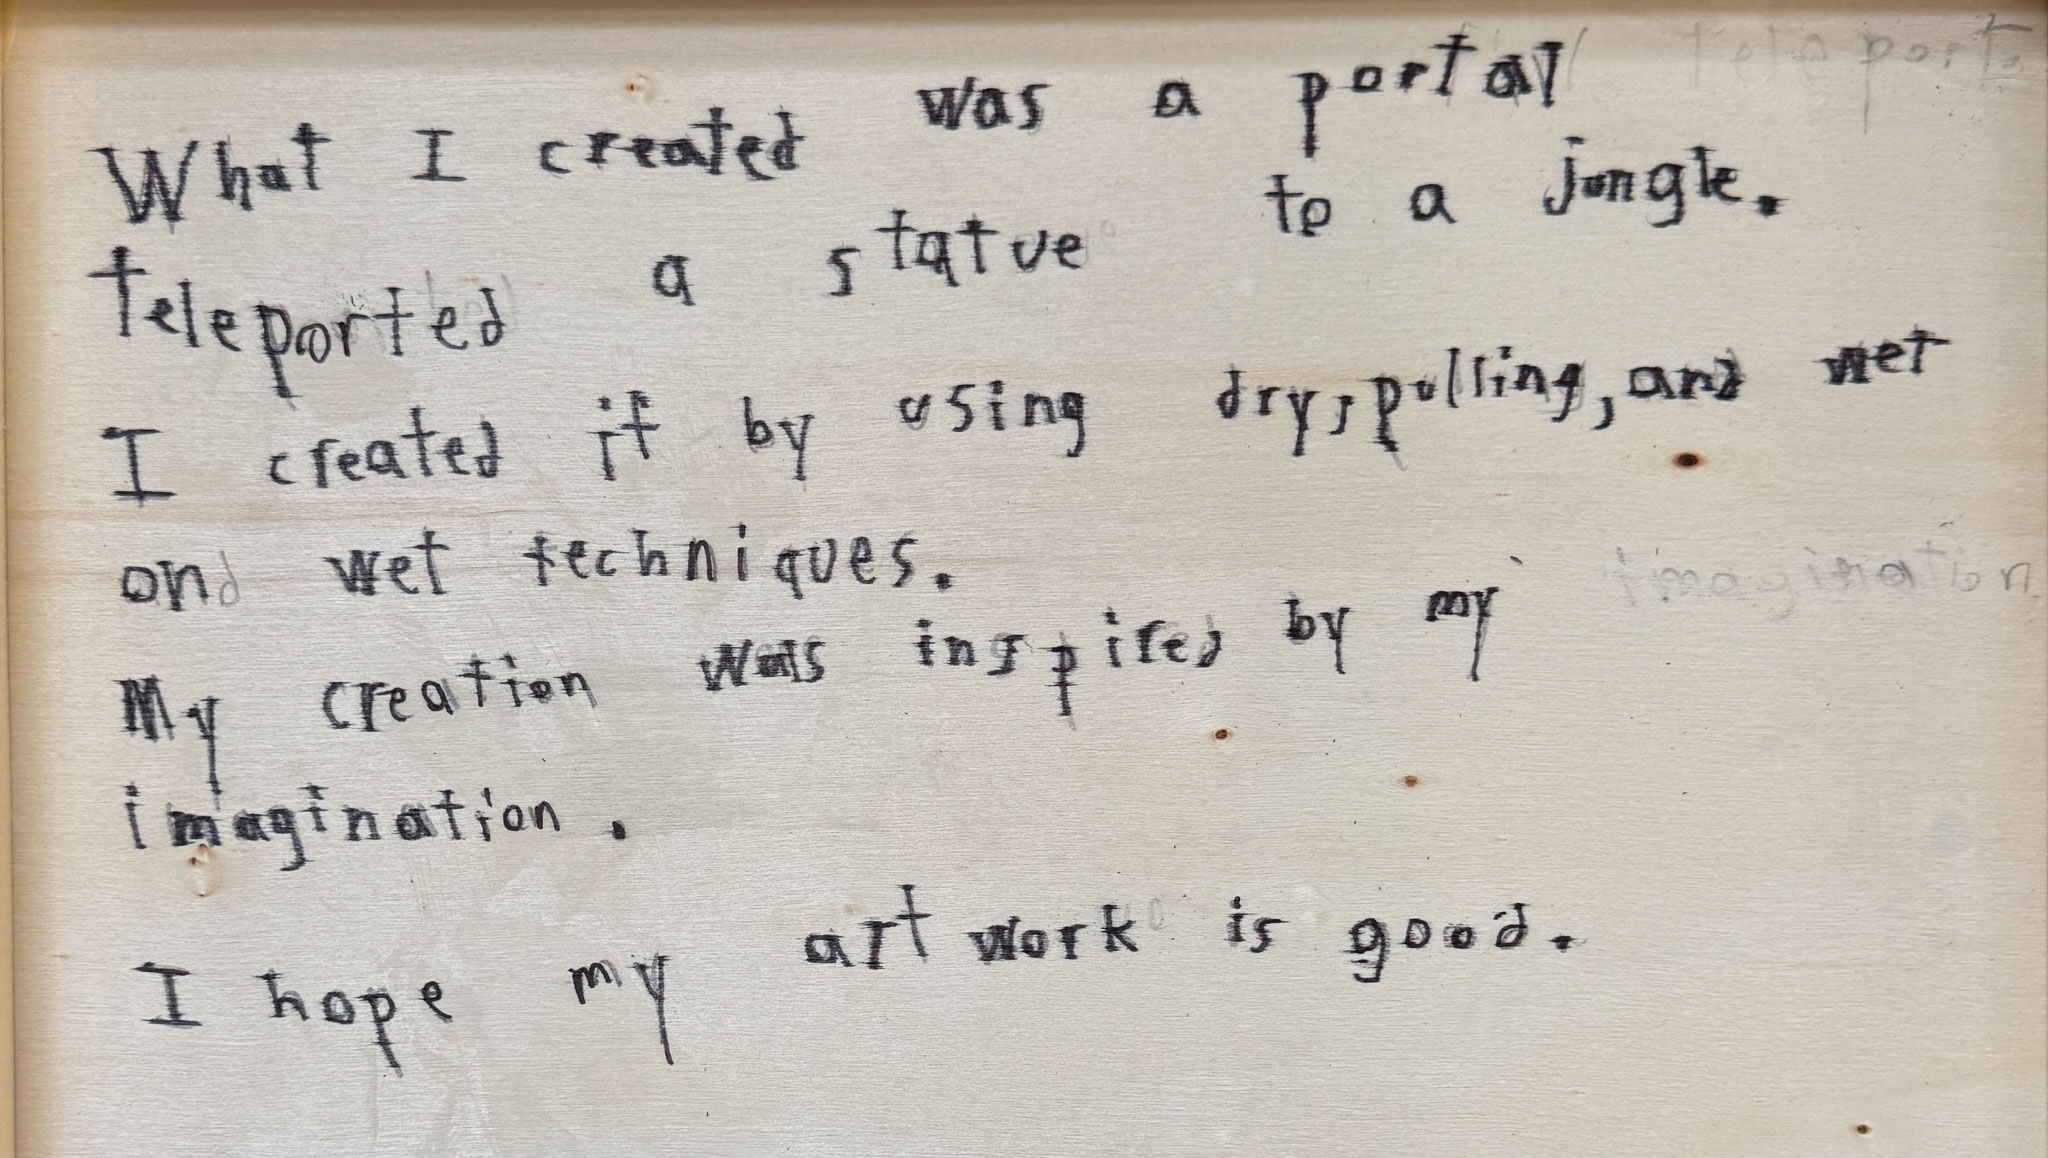 What I created was a portal
teleported a statue to a jungle.
I created it by using dry, pulling, and wet
and wet techniques.
My creation was inspired by my
imagination.
I hope my art work is good.